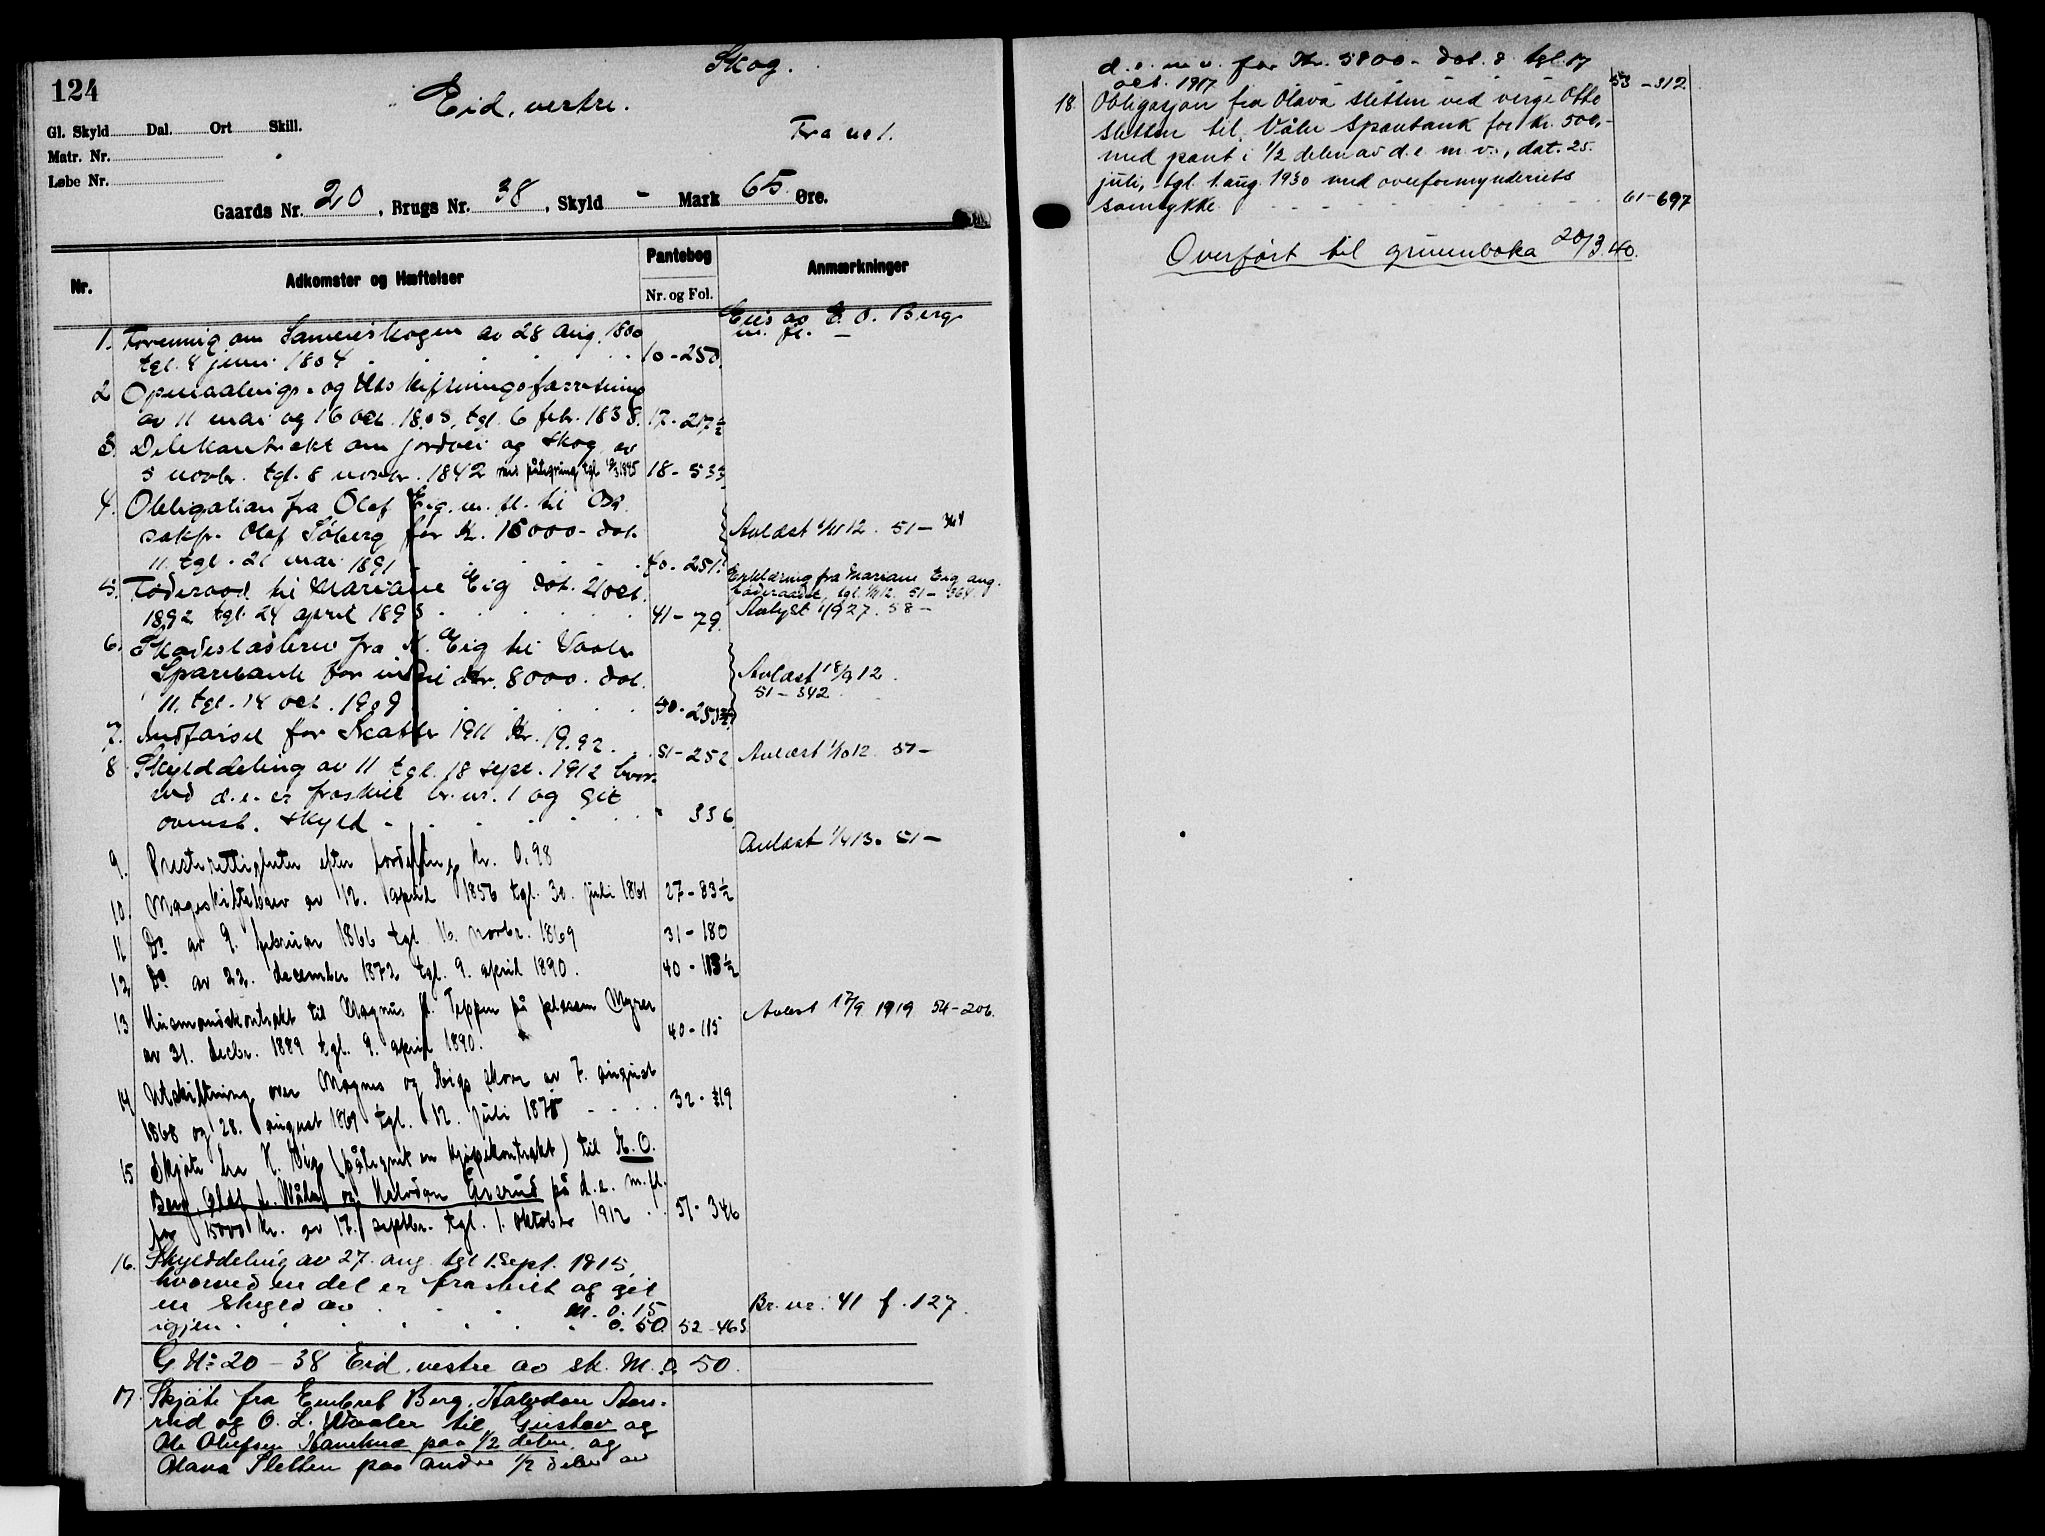 124
Skog.
Eid, vestre.
Gl. Skyld Dal. Ort Skill.
Fra no 1.
Matr. Nr.
Løbe Nr.
Gaards Nr. 20, Brugs Nr. 38, Skyld - Mark 65 Øre.
Nr. Adkomster og Hæftelser Pantebog Nr. og Fol. Anmærkninger
Eies av E. O. Berg
m. fl.
1. Forening om Sameieskogen av 28 aug. 1800
tgl. 4 juni 1804 10-250.
2 Opmaalings- og Utskiftningsforretning
av 11 mai og 16 oct. 1805, tgl. 6 febr. 1838. 17-217½
3. Delekontrakt om jordvei og skog av
5 novbr. tgl. 8 novbr. 1842 med påtegning tgl. 1845 18-533
4. Obligation fra Olef Eig m. fl. til O.R.
sakfr. Olaf Söberg for Kr. 15000- dat.
11. tgl. 21 mai 1891 40-251. Avlæst 12. 51-364
5. Föderaad til Mariane Eig dat. 21 oct.
1892 tgl. 24 april 1893 41-79.
Erklæring fra Mariane Eig ang.
föderaadet, tgl. 12. 51-364.
Avlyst 1927. 58-
6. Skadesløsbrev fra K. Eig til Vaaler
Sparebank for indtil Kr. 8000. dat.
11. tgl. 14 oct. 1909 50-253
Avlæst 18/9 12.
51-342
7. Indförsel for Skatter 1911 Kr. 19.92. 51-252 Avlæst 1/10 12. 51-
8 Skylddeling av 11 tgl. 18 sept. 1912 hvor-
ved d.e. er fraskilt br. nr. 1 og git
ovenst. skyld - " 336.
9. Presterettigheter efter fordeling kr. 0.98 Avlæst 1/4 13. 51-
10. Mageskiftebrev av 12. april 1856 tgl. 30. juli 1861 27-83½
11 Do av 9. februar 1866 tgl. 16. novbr. 1869 31-180
12 Do av 22. december 1872 tgl. 9. april 1890. 40-113½
13 Husmandskontrakt til Magnus H. Teppen på pladsen Myrer
av 31. decbr. 1889 tgl. 9. april 1890. 40-115
Avlest 17/9 1919 54-206.
14 Utskiftning over Magnes og Eigs skove av 7. august
1868 og 28. august 1869 tgl. 12. juli 1875 32-319
15 Skjøte fra K. Eig (påtegnet en kjøpekontrakt) til E. O.
Berg, Olaf L. Wåler og Halvdan Åserud på d.e. m. fl.
for 15000 Kr. av 17. septbr. tgl. 1. oktober 1912 51-346
16. Skylddeling av 27. aug. tgl. 1. Sept. 1915
hvorved en del er fraskilt og git
en skyld av M. 0.15 Br. nr. 41 f. 127.
igjen 0.50. 52-463
G. No 20-38 Eid, vestre av sk. M. 0. 50.
17. Skjöte fra Embret Berg, Halvdan Aase-
rud og O. L. Waaler til Gustav og
Ole Olufsen Hanekne paa 1/2 delen og
Olava Sletten paa andre 1/2 delen av
d.e. m. v. for Kr. 5800- dat. 8 tgl. 17
oct. 1917 53-312
18. Obligasjon fra Olava Sletten ved verge Otto
Sletten til Våler Sparebank for kr. 500,-
med pant i 1/2 delen av d. e. m. v., dat. 25.
juli, tgl. 1. aug. 1930 med overformynderiets
samtykke 61-697
Overfört til grunnboka 20/3.40.